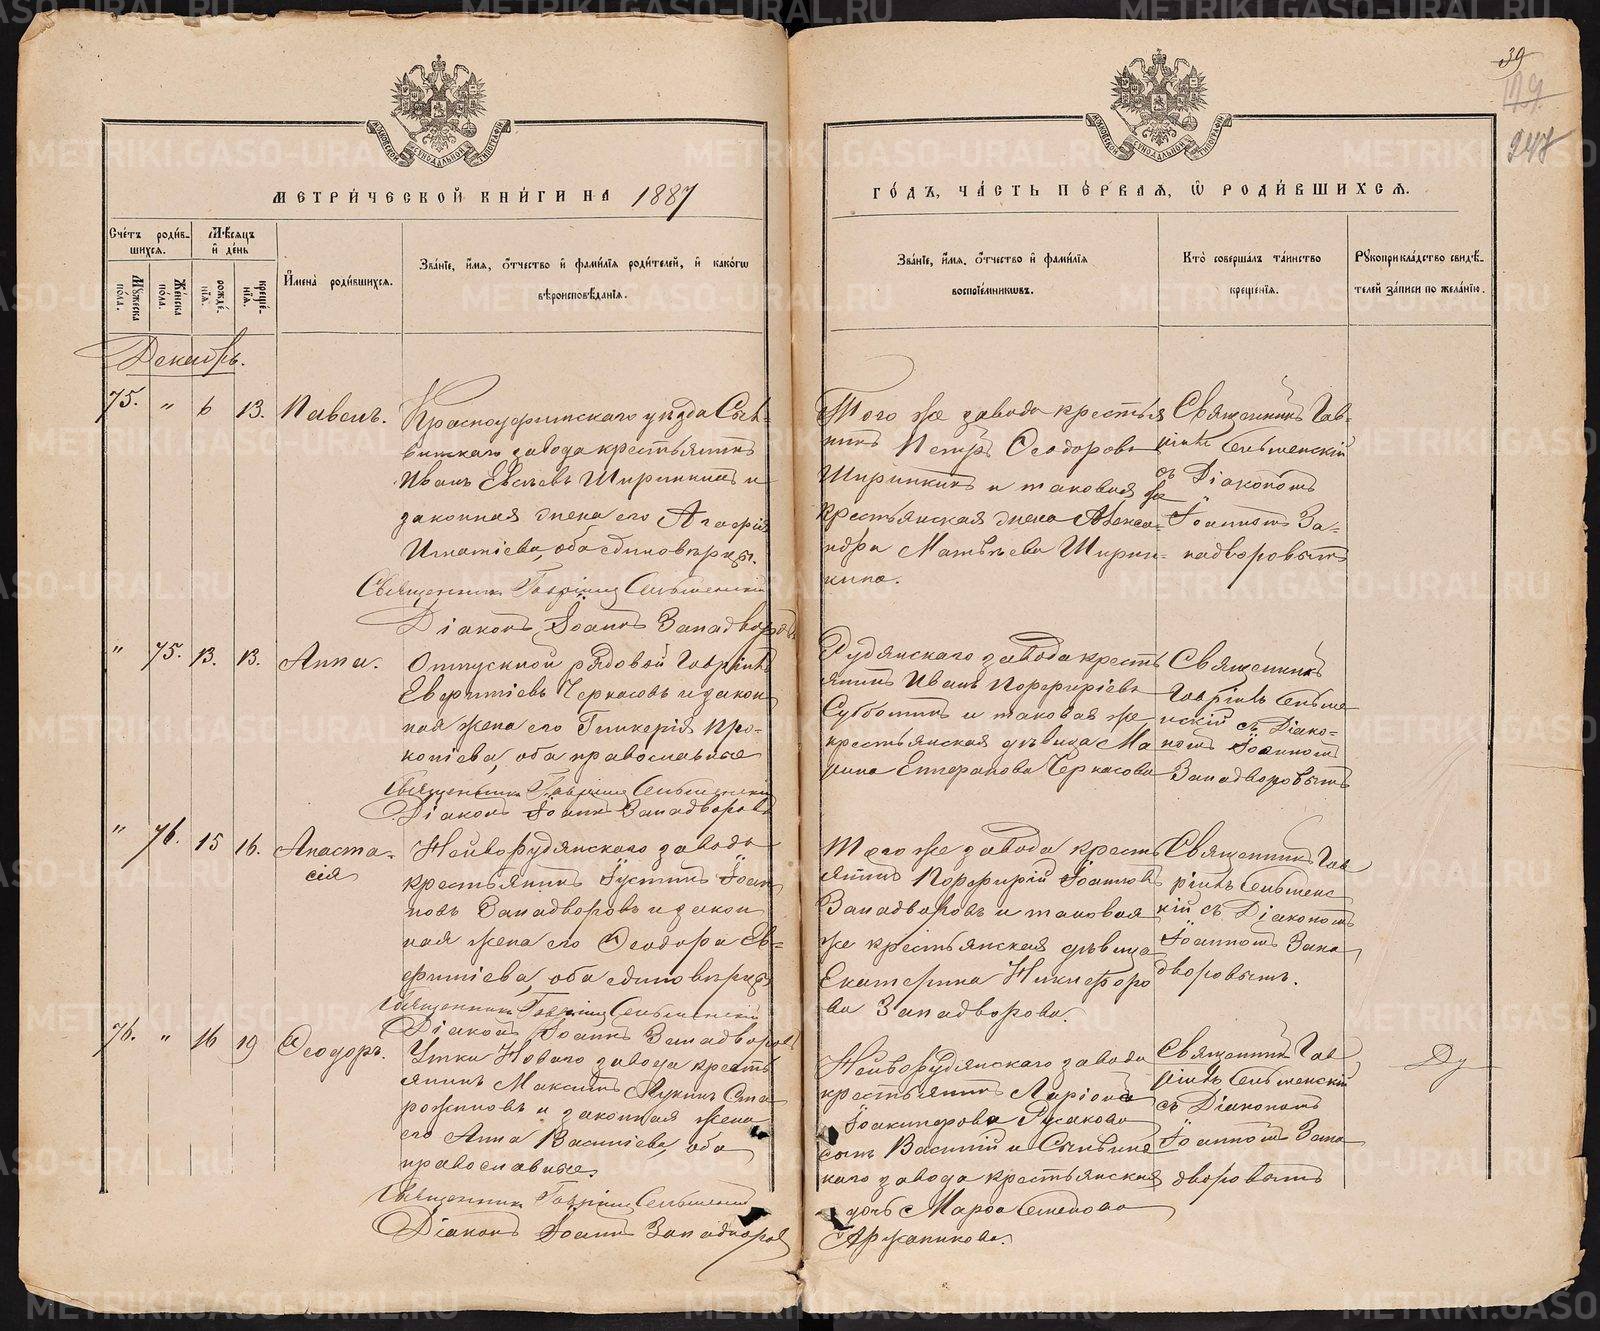 39
129
247
МОСКОВСКОЙ СѴНОДАЛЬНОЙ ТИПОГРАФІИ
МОСКОВСКОЙ СѴНОДАЛЬНОЙ ТИПОГРАФІИ
МЕТРИ́ЧЕСКОЙ КНИ́ГИ НА 1887
ГО́ДЪ, ЧА́СТЬ ПЕ́РВАЯ, Ѡ РОДИ́ВШИХСЯ.
Сче́тъ роди́в-
шихся.
Мѣ́сяцъ
и де́нь
Му́жеска по́ла.
Же́нска по́ла.
рожде́нія.
креще́нія.
Имена̀ роди́вшихся.
Зва́ніе, и́мя, о́тчество и фами́лія роди́телей, и како́гѡ
вѣроисповѣ́данія.
Зва́ніе, и́мя, о́тчество и фами́лія
воспріе́мникѡвъ.
Кто̀ соверша́лъ та́инство
креще́нія.
Рукоприкла́дство свидѣ́-
телей за́писи по жела́нію.
Декабрь.
75. " 6 13. Павелъ.
Красноуфимскаго уѣзда Сыл-
винскаго завода крестьянинъ
Иванъ Ширинкинъ и
законная жена его Агафія
Игнатіева, оба единовѣрцы.
Священникъ Гавріилъ
Діаконъ Іоаннъ Западворовъ
Того же завода крестья
нинъ Петръ Ѳеодоровъ
Ширинкинъ и таковая же
крестьянская жена Алекса-
ндра Матвѣева Ширин-
кина.
Священникъ Гав-
ріилъ
съ Діакономъ
Іоанномъ За-
падворовымъ
" 75. 13. 13. Анна.
Отпускной рядовой Гавріилъ
Евфиміевъ Черкасовъ и закон
ная жена его Гликерія Про-
копіева, оба православные
Священникъ Гавріилъ
Діаконъ Іоаннъ Западворовъ
Рудянскаго завода кресть
янинъ Иванъ Порфиріевъ
Субботинъ и таковая же
крестьянская дѣвица Ма
рина Черкасова
Священникъ
Гавріилъ
съ Діако-
номъ Іоанномъ
Западворовымъ
" 76. 15 16. Анаста-
сія
Нейворудянскаго завода
крестьянинъ Іустинъ Іоан
новъ Западворовъ и закон
ная жена его Ѳеодора Ев-
фиміева, оба единовѣрцы
Священникъ Гавріилъ
Діаконъ Іоаннъ Западворовъ
Того же завода кресть
янинъ Порфирій Іоанновъ
Западворовъ и таковая
же крестьянская дѣвица
Екатерина Никифоро
ва Западворова.
Священникъ Гав
ріилъ
съ Діакономъ
Іоанномъ Запа
дворовымъ.
76. " 16 19 Ѳеодоръ.
Утки Новаго завода кресть
янинъ Максимъ Лукинъ Ста
рожиковъ и законная жена
его Анна Василіева, оба
православные.
Священникъ Гавріилъ
Діаконъ Іоаннъ Западворовъ
Нейворудянскаго завода
крестьянина Ларіона
Іоакимова Русакова
сынъ Василій и Сылвинс
каго завода крестьянская
дочь Марѳа Семенова
Аржаникова.
Священникъ Гав
ріилъ
съ Діакономъ
Іоанномъ Запа
дворовымъ